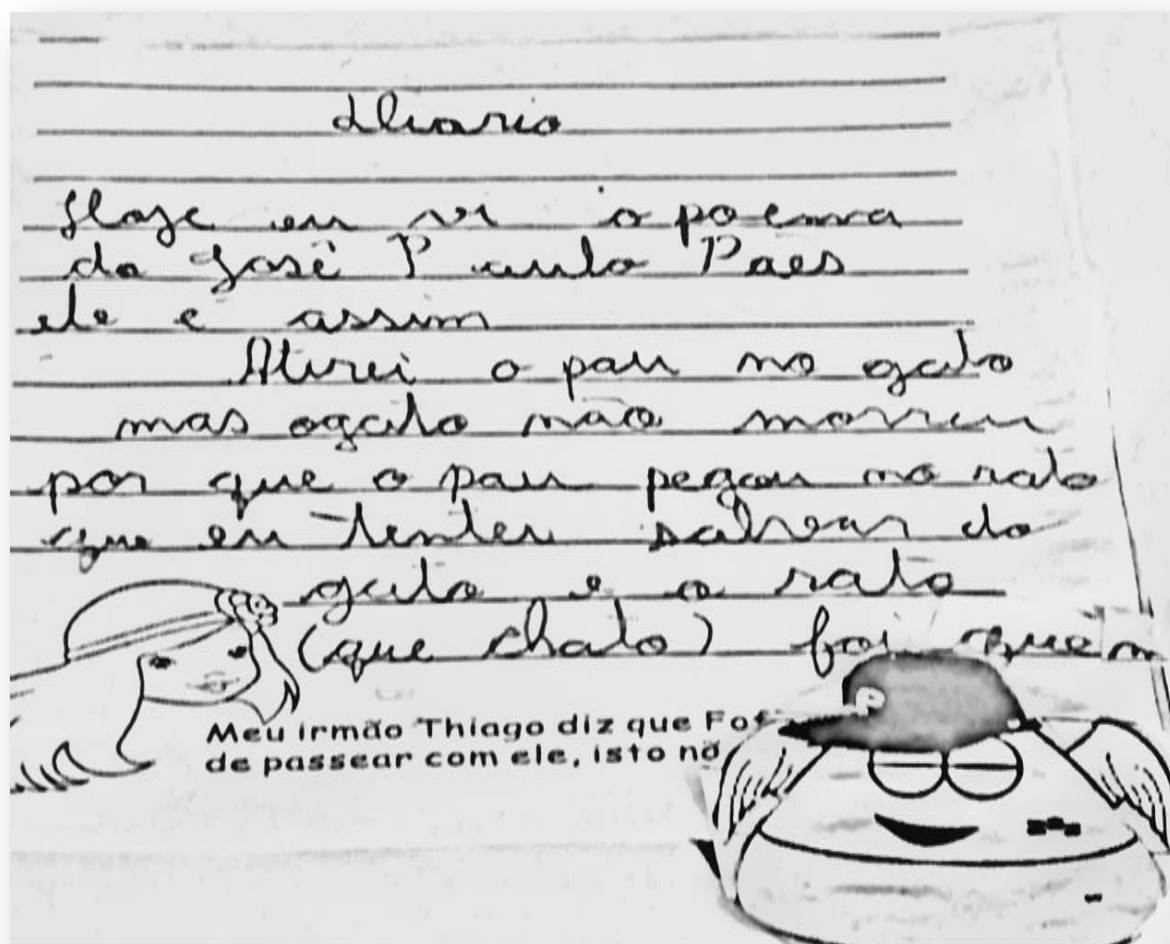 Diario
Hoje eu vi o poema
do José Paulo Paes
ele e assim
Atirei o pau no gato
mas ogato não morreu
por que o pau pegou no rato
que eu tentei salvar do
gato e o rato
(que chato) foi quem
Meu irmão Thiago diz que
de passear com ele, isto
P